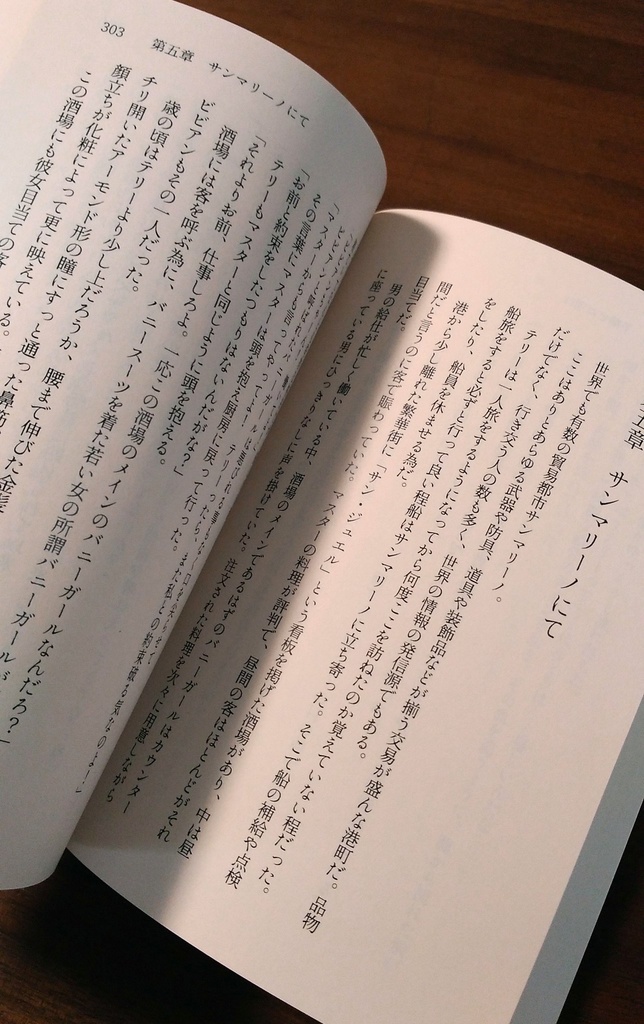 五章　サンマリーノにて
世界でも有数の貿易都市サンマリーノ。
ここはありとあらゆる武器や防具、道具や装飾品などが揃う交易が盛んな港町だ。品物
だけでなく、行き交う人の数も多く、世界の情報の発信源でもある。
テリーは一人旅をするようになってから何度ここを訪ねたのか覚えていない程だった。
船旅をすると必ずと行って良い程船はサンマリーノに立ち寄った。そこで船の補給や点検
をしたり、船員を休ませる為だ。
港から少し離れた繁華街に「サン・ジュエル」という看板を掲げた酒場があり、中は昼
間だと言うのに客で賑わっていた。マスターの料理が評判で、昼間の客はほとんどがそれ
目当てだ。
男の給仕が忙しく働いている中、酒場のメインであるはずのバニーガールはカウンター
に座っている男にひっきりなしに声を掛けていた。注文された料理を次々に用意しながら
303　第五章　サンマリーノにて
「マスターからも言ってやってよ！
その言葉にマスターは頭を抱え厨房に戻って行った。
「お前と約束をしたつもりはないんだがな？」
テリーもマスターと同じように頭を抱える。
「それよりお前、仕事しろよ。一応この酒場のメインのバニーガールなんだろ？」
酒場には客を呼ぶ為に、バニースーツを着た若い女の所謂バニーガールが
ビビアンもその一人だった。
歳の頃はテリーより少し上だろうか、腰まで伸びた金髪
チリ開いたアーモンド形の瞳にすっと通った鼻筋
顔立ちが化粧によって更に映えている。
この酒場にも彼女目当ての客